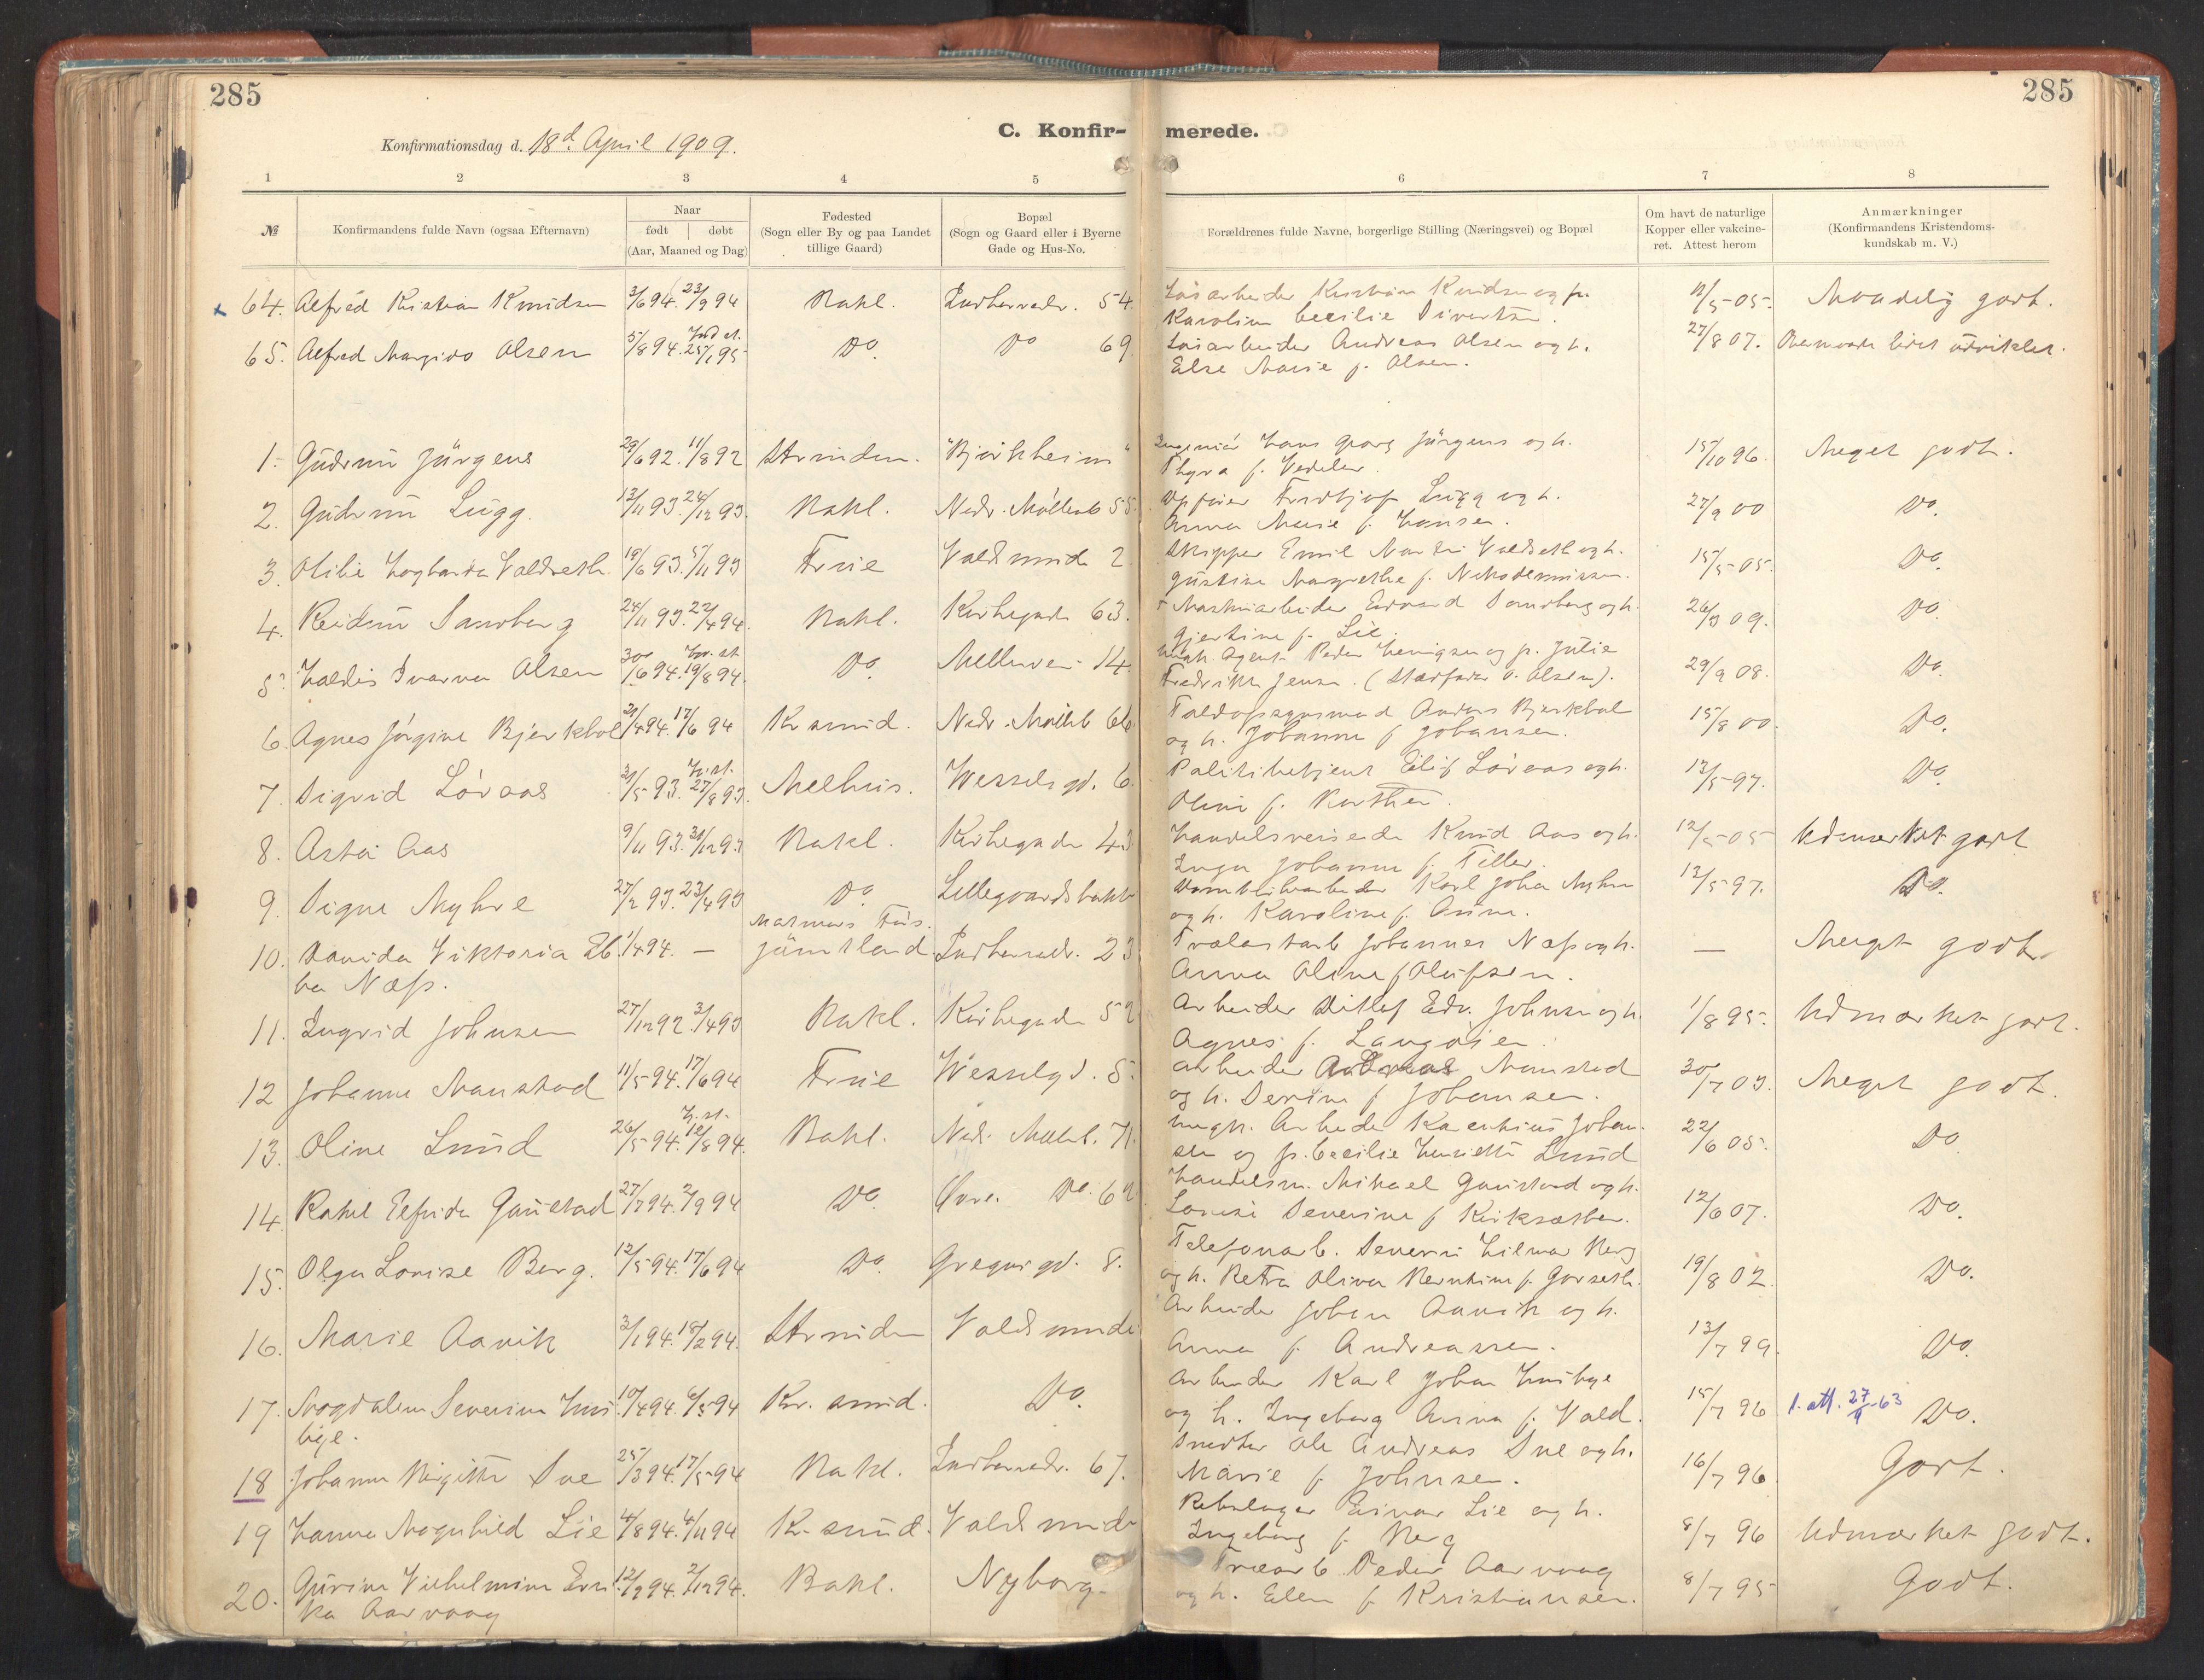 285
285
C. Konfir- merede.
Konfirmationsdag d. 18d. April 1909.
1 2 3 4 5 6 7 8
№ Konfirmandens fulde Navn (ogsaa Efternavn) Naar født døbt (Aar, Maaned og Dag) Fødested (Sogn eller By og paa Landet tillige Gaard) Bopæl (Sogn og Gaard eller i Byerne Gade og Hus-No. Forældrenes fulde Navne, borgerlige Stilling (Næringsvei) og Bopæl Om havt de naturlige Kopper eller vakcineret. Attest herom Anmærkninger (Konfirmandens Kristendomskundskab m. V.)
64. Alfred Kristian Knudsen 3/6 94. 23/9 94 Bakl. Indherredv. 54 Løsarbeider Kristian Knudsen og fr. 11/5 05. Maadelig godt.
Karoline Cecilie Sivertsen.
65. Alfred Margido Olsen 5/8 94. 25/1 95 Do. Do 69. Løsarbeider Andreas Olsen og h. 27/8 07. Overmaade lidet udviklet.
Else Marie f. Olsen.
1. Gudrun Jürgens 29/6 92. 11/8 92 Strinden. "Bjørkheim" Ingeniør Hans Georg Jürgens og h. 15/10 96. Meget godt.
Thyra f. Vedeler.
2. Gudrun Lugg. 13/11 93. 24/12 93. Bakl. Nedr. Møllenb 55. Opsier Fridtjof Lugg og h. 27/9 00 Do.
Anna Marie f. Hansen.
3. Otilie Hagbarda Valdseth 19/6 93. 5/11 93 Frue Vollsminde 2. Skipper Emil Martin Valdseth og h. 15/5 05. Do.
Justine Margrethe f. Nikodemussen.
4. Reidun Sandberg 24/11 93. 22/4 94. Bakl. Kirkegade 63. Maskinarbeider Edvard Sandberg og h. 26/3 09. Do.
Gjertine f. Lie.
5. Haldis Ivarna Olsen 30/6 94. 19/8 94. Do. Mellemvei 14. Ungk. Agent Peder Henrigsen og p. Julie 29/9 08. Do.
Fredrikke Jensen. (Stedfader O. Olsen).
6. Agnes Jørgine Bjerkhol 21/4 94. 17/6 94 Kr.sund. Nedr. Mølleb 66 Toldopsynsmand Anders Bjerkhol 15/8 00. Do.
og h. Johanna f. Johansen.
7. Sigrid Løraas 31/5 93. 27/8 93. Melhus. Wessels gd. 6. Politibetjent Eilif Løraas og h. 13/5 97. Do.
Oline f.
8. Asta Aas 9/11 93. 31/12 93 Bakl. Kirkegade 43 Handelsreisende Knud Aas og h. 12/5 05 Udmerket godt
Inga Johanna f. Tiller.
9. Signe Myhre 27/2 93. 23/4 93 Do. Lillegaardsbakk Karl Johan Myhre 13/5 97. Do.
og h. Karoline f.
10. Davida Viktoria Eb 1/4 94. — Jämtland. Indherredv. 23 Trælastarb Johannes Næss og h. — Meget godt.
ba Næss. Anna Oline f Olufsen.
11. Ingrid Johnsen 27/12 92 3/4 93 Bakl. Kirkegade 52 Arbeider Ditlef Edv. Johnsen og h. 1/8 95. Udmerket godt.
Agnes f. Langøien.
12 Johanna Manstad 11/5 94. 17/6 94 Frue Wesselsgd. 5. Arbeider Andreas Manstad 30/7 03. Meget godt.
og h. Serine f Johansen.
13. Oline Lund 26/5 94. 12/8 94. Bakl. Ned. Mølleb. 71 Ungk. Arbeider Karentius Johan- 22/6 05. Do
sen og p. Cecilie Henriette Lund
14. Rakel Elfrida Gaustad 27/7 94. 2/9 94 Do. Øvre. Do. 62 Handelsm. Mikael Gaustad og h. 12/6 07. Do.
Lovise Severine f Kirksæther.
15. Olga Lovise Berg. 12/5 94. 17/6 94 Do. Gregusgd. 8. Telefonarb. Severin Hilmar Berg 19/8 02. Do.
og h. Petra Oliva Berntine f. Garseth.
16. Marie Aavik 3/1 94. 18/2 94. Strinden Voldsminde Arbeider Johan Aavik og h. 13/7 99. Do.
Anna f. Andreassen.
17. Magdalene Severine Hus 10/4 94. 6/5 94 Kr. sund. Do. Arbeider Karl Johan Husbye 15/7 96 l. att. 27/9-63 Do.
bye. og h. Ingeborg Anna f. Vold.
18 Johanna Birgitte Sve 25/3 94. 17/5 94 Bakl. Indherredv. 67. Snedker Ole Andreas Sve og h. 16/7 96. Godt.
Marie f. Johnsen.
19 Hanna Magnhild Lie 4/8 94. 4/11 94 Kr. sund. Voldsminde Rebslager Einar Lie og h. 8/7 96 Udmærket godt.
Ingeborg f. Berg
20. Gurine Vilhelmine Eri 12/9 94. 2/12 94. Bakl. Nyborg. Træarb Peder Aarvaag 8/7 95 Godt.
ka Aarvaag og h. Elen f. Kristiansen.